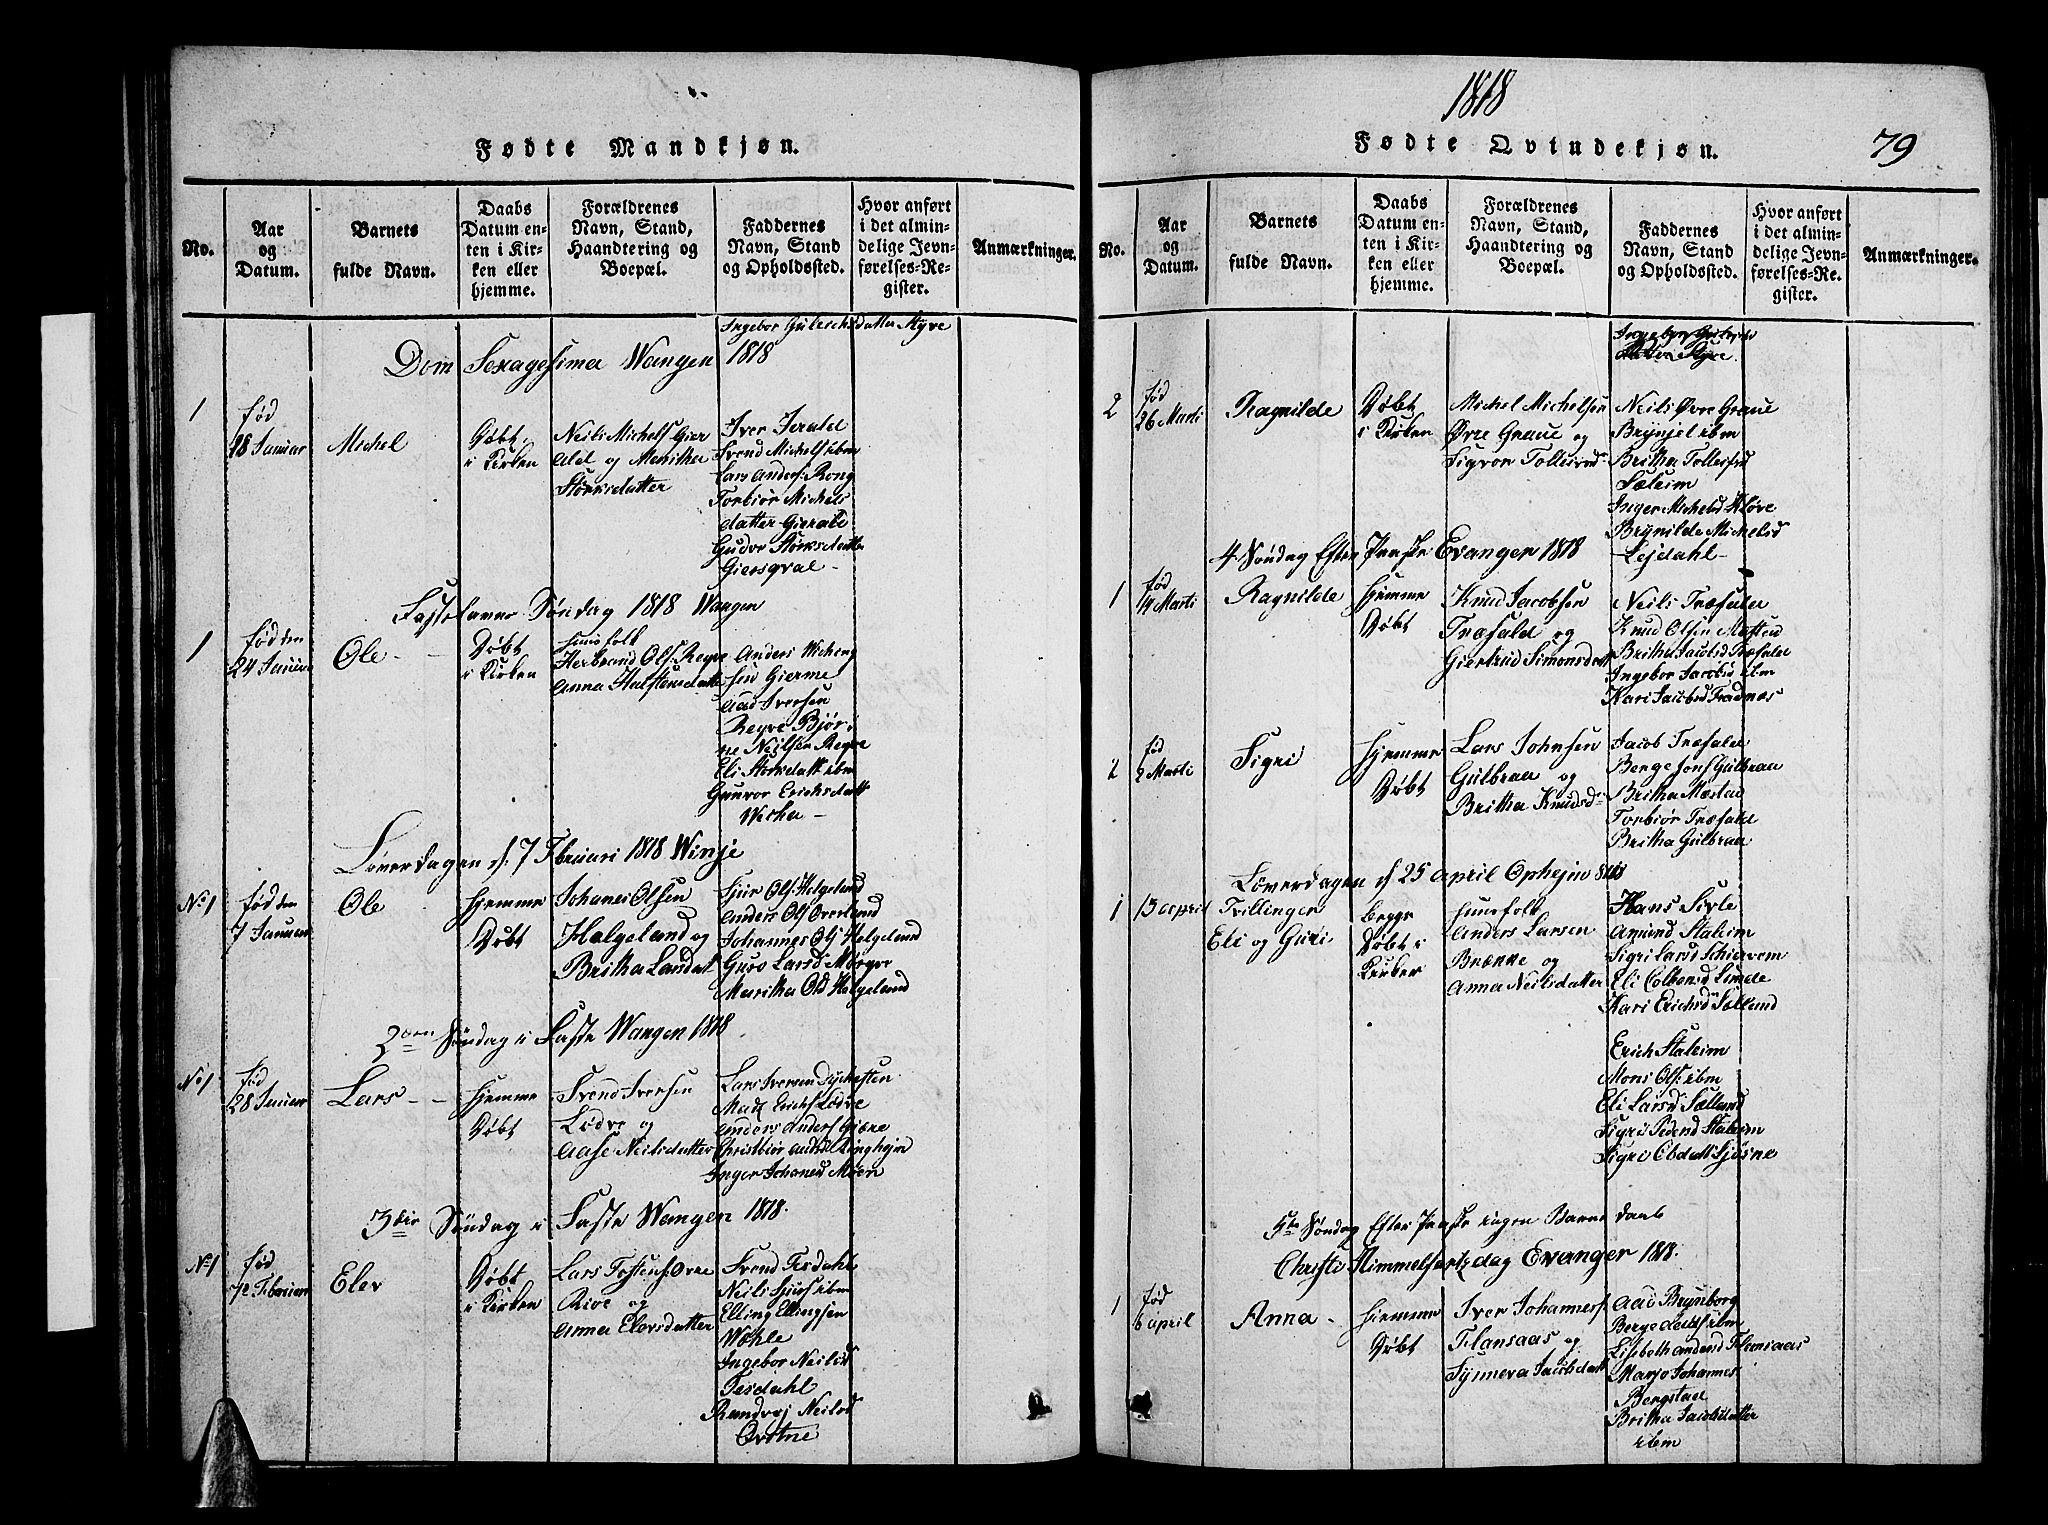 1818
79
Fødte Mandkjøn.
No.
Aar og Datum.
Barnets fulde Navn.
Daabs Datum enten i Kirken eller hjemme.
Forældrenes Navn, Stand, Haandtering og Boepæl.
Faddernes Navn, Stand og Opholdssted.
Hvor anført i det almindelige Jevnførelses-Register.
Anmærkninger.
Ingebor Guleichsdatter Styve
Dom Sexagesima Wangen 1818
1
fød
18 Januar
Michel
Døbt
i Kirken
Neils Michels Gier
ald og Maritha
Størksdatter
Iver Jerald
Svend Michels ibm
Lars Anders: Rong
Torbiør Michels
datter Gierald
Gudve Størksdatter
Giersqval -
Fastelavns Søndag 1818 Wangen
1
fød den
24 Januar
Ole
Døbt
i Kirken
Huusfolk
Herbrand Ols: Regve
Anna Halstensdatter
Anders
sen Gierme
Aad Iversen
Regve Bjør
ne Neilsen Regve
Eli Størksdatt ibm
Gunvor Erichsdatt
Løverdagen d. 7 Februari 1818 Winje
No 1
fød den
7 Januar
Ole
Hjemme
Døbt
Johanes Olsen
Helgeland og
Britha Larsdatt
Siur Ols: Helgeland
Anders Ols Overland
Johannes Ols Helgeland
Guro Larsd Mørqve
Maritha Olsd Helgeland
2den Søndag i Faste Wangen 1818
No 1
fød
28 Januar
Lars
Hjemme
Døbt
Svend Iversen
Lødve og
Aase Neilsdatter
Lars Iversen Dychesten
Mads Erichs Lødve
Anders Anders Gjære
Christbiør Andsd Ringhejm
Inger Johanesd Moen
3die Søndag i Faste Wangen 1818.
No 1
fød
12 Februari
Elev
Døbt
i Kirken
Lars Tostens: Øvre
Rive og
Anna Elevsdatter
Svend Tesdahl
Neils Sjurs ibm
Elling Ellingsen
Wæhle
Ingebor Neilsd
Tesdahl
Randvej Neilsd
Qvitne
Fødte Qvindekjøn.
No.
Aar og Datum.
Barnets fulde Navn.
Daabs Datum enten i Kirken eller hjemme.
Forældrenes Navn, Stand, Haandtering og Boepæl.
Faddernes Navn, Stand og Opholdssted.
Hvor anført i det almindelige Jevnførelses-Register.
Anmærkninger.
Ingebor Guleichs
datter Styve
2
fød
26 Marti
Ragnilde
Døbt
i Kirken
Michel Michelsen
Øvre Graue og
Sigvor Tolleivsd
Neils Øvre Graue
Brynjel ibm
Britha Tolleifsd
Sæleim
Inger Michelsd Kløve
Brynilde Michelsd
Lejdahl
4 Søndag Efter Paaske Evanger 1818
1
fød
14 Marti
Ragnilde
Hjemme
Døbt
Knud Jacobsen
Træfald og
Giertrud Simonsdatt
Neils Træfald
Knud Olsen Mæstad
Britha Jacobsd Træfald
Ingebor Jacobsd ibm
Kari Jacobsd Fadnæs
2
fød
2 Marti
Sigri
Hjemme
Døbt
Lars Johnsen
Gulbraa og
Britha Knudsd
Jacob Træfald
Berge Jons Gulbraa
Britha Mæstad
Torbiør Træfald
Britha Gulbraa
Løverdagen d 25 April Ophejm 1818
1
13 April
Tvillinger
Eli og Guri
begge
Døbt i
Kirken
Huusfolk
Anders Larsen
Brænne og
Anna Neilsdatter
Hans Sivle
Amund Staleim
Sigri Larsd Schiervem
Eli Colbensd Lunde
Kari Erichsd Sælland
Erich Staleim
Mons Ols: ibm
Eli Larsd Sælland
Sigri Pedersd Staleim
Sigri Olsdatt Sjøsne
5te Søndag Efter Paaske ingen Barne daab
Christi Himmelfartsdag Evanger 1818.
1
fød
6 April
Anna
Hjemme
Døbt
Iver Johannes:
Fansaas og
Synneva Jacobsdatt
Aad Brynborg
Berge ibm
Lisebeth Andersd
Marjo Johannes
Bergstad
Britha Jacobsdatter
ibm